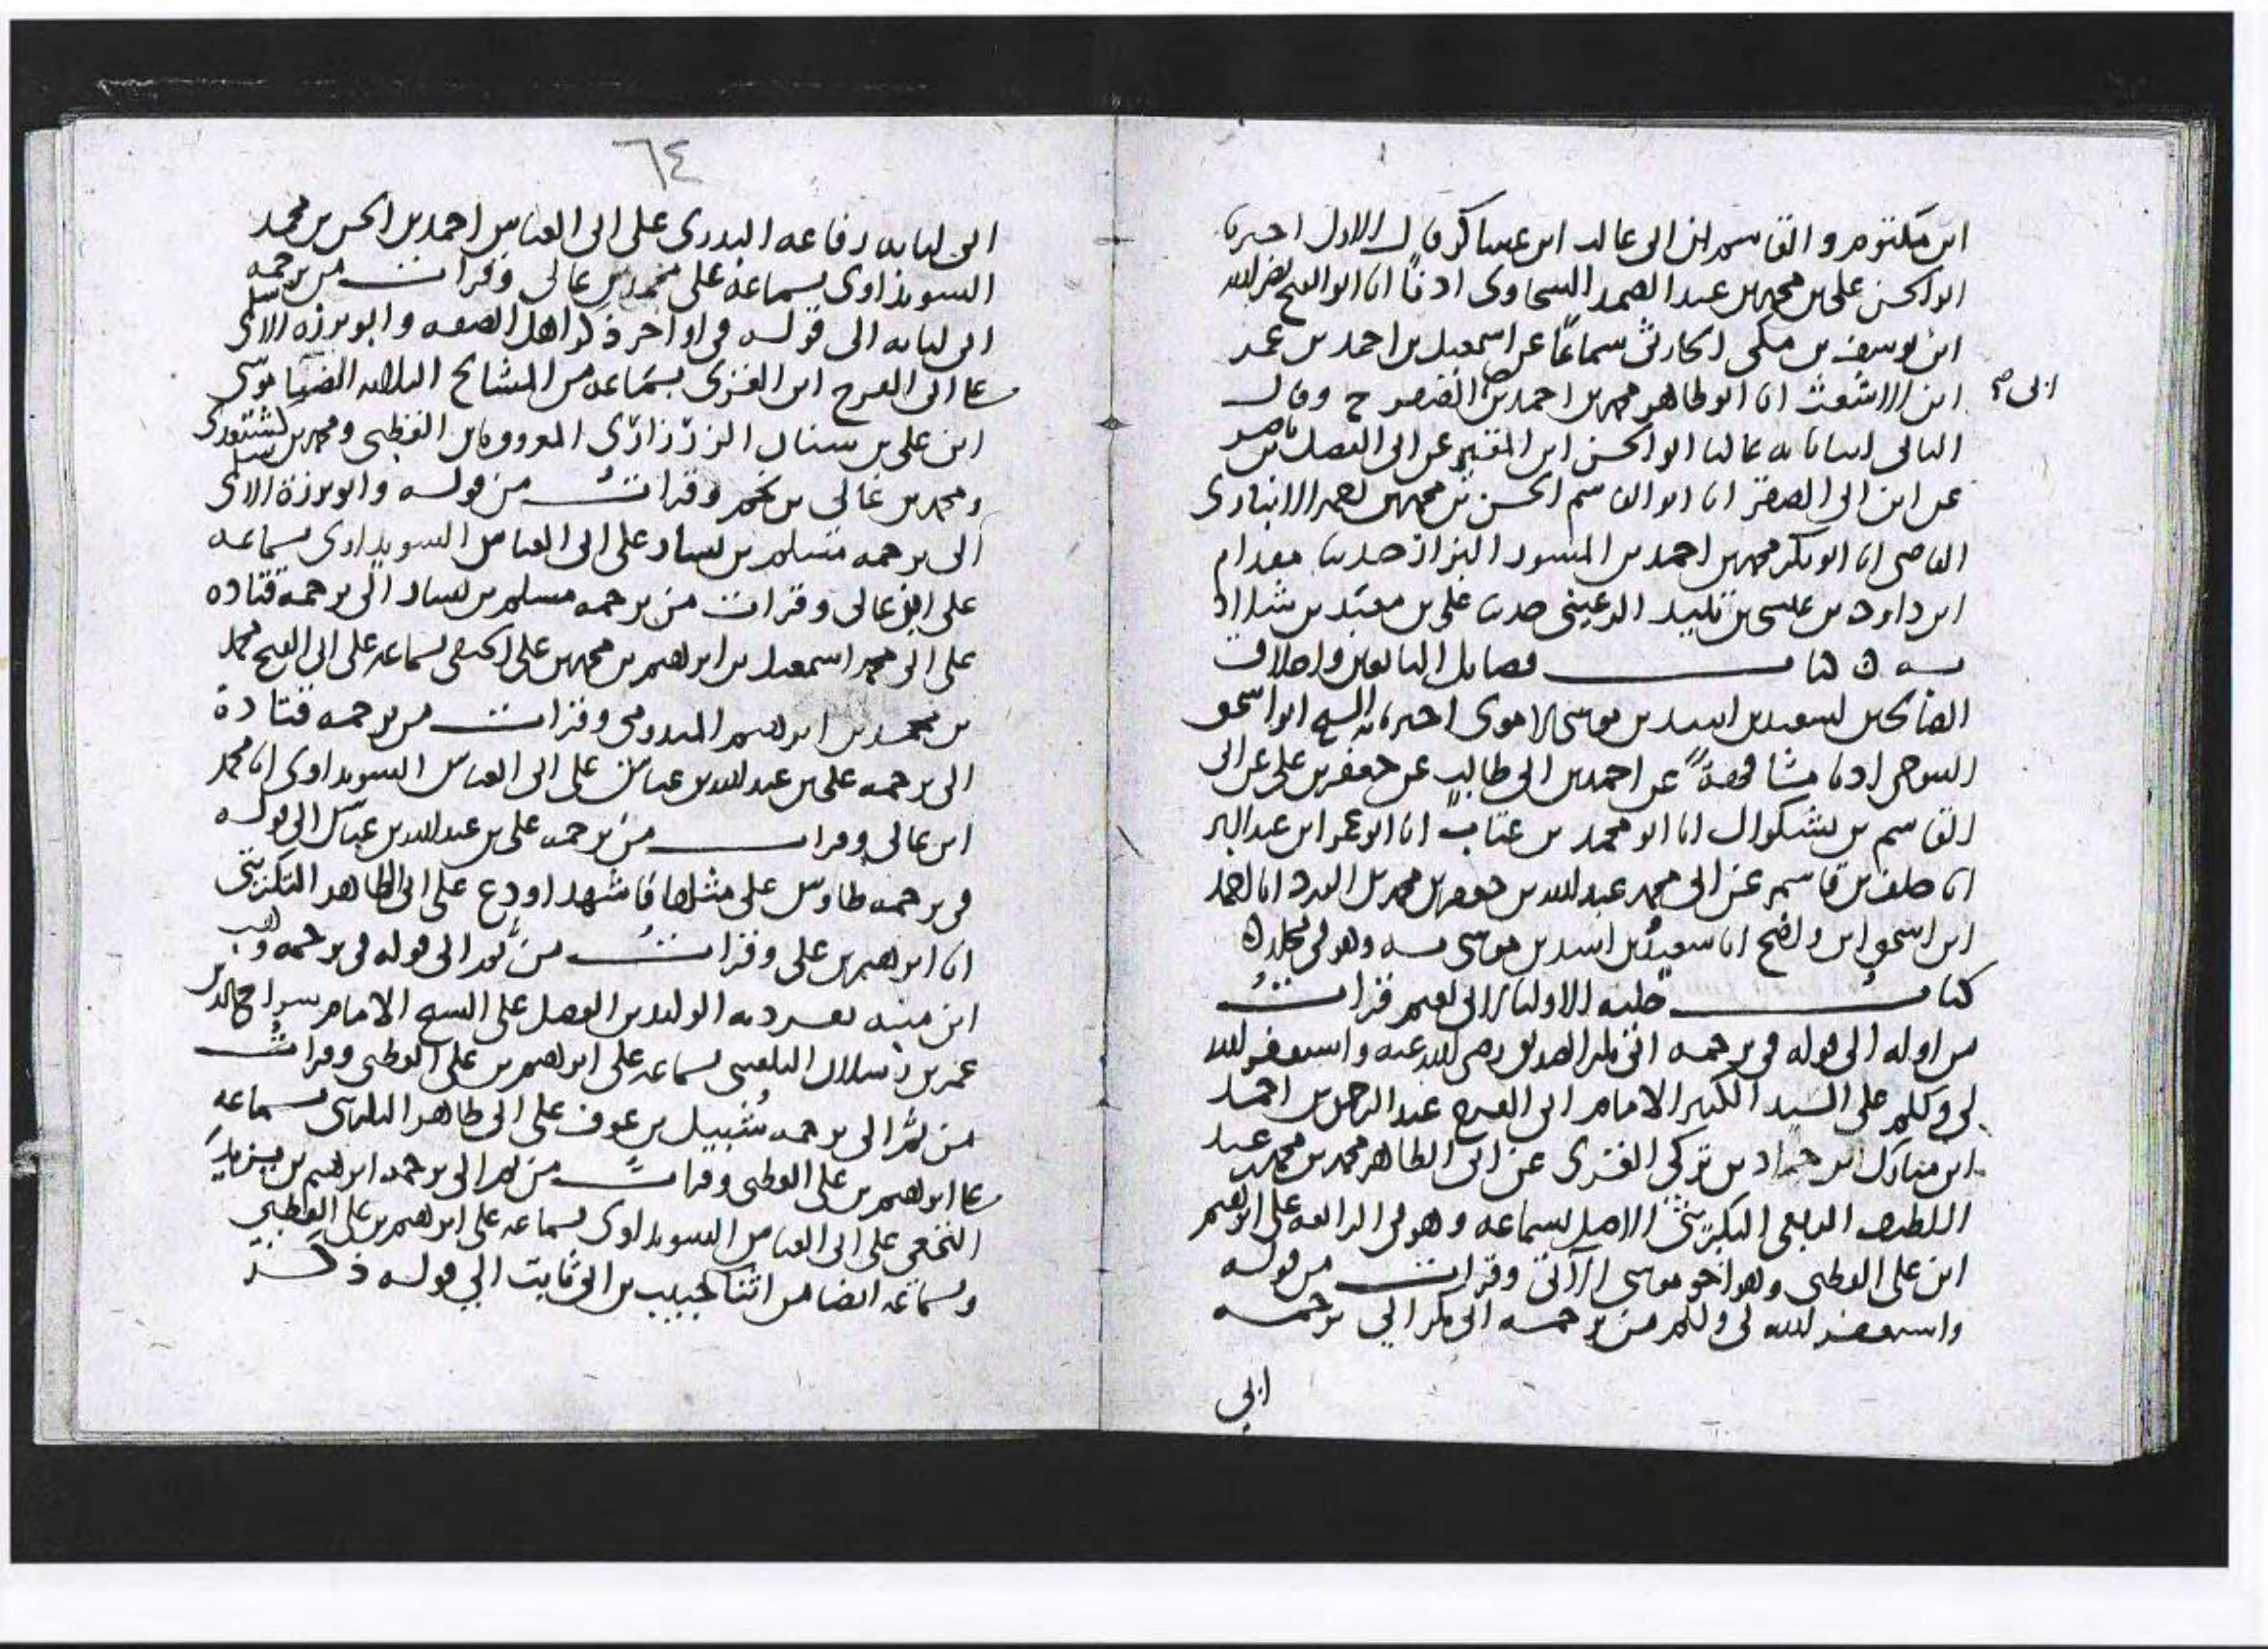 ابن مكتوم والقاسم ابن ابي غالب ابن عساكر قال الاول اخبرنا
ابو الحسن علي بن محمد بن عبد الصمد السخاوي اذنا انا ابو الفتح نصر الله
ابن يوسف بن مكي الحارثي سماعا عن اسمعيل بن احمد بن عمر
ابن الاشعث انا ابو طاهر محمد بن احمد بن قيصر ح وقال
ابي صح
الثاني انبانا به عاليا ابو الحسن ابن المقير عن ابي الفضل بن ناصر
عن ابن ابي الصقر انا ابو القاسم الحسن بن محمد بن الانباري
القاضي انا ابو بكر محمد بن احمد بن المسور البزاز حدثنا مقدام
ابن داود بن عيسى بن تليد الرعيني حدثنا علي بن معبد بن شداد
به كتاب فضايل التابعين واخلاق
الصالحين لسعيد بن اسد بن موسى الاموي اخبرنا به الشيخ ابو اسحق
التنوخي اذنا مشافهة عن احمد بن ابي طالب عن جعفر بن علي عن ابي
القاسم بن بشكوال انا ابو محمد بن عتاب انا ابو عمر ابن عبد البر
انا خلف بن قاسم عن ابي محمد عبد الله بن جعفر بن محمد بن الورد انا احمد
ابن اسحق ابن واضح انا سعيد بن اسد بن موسى به وهو في مجلد
كتاب حلية الاولياء لابي نعيم قرات
من اوله الى قوله في ترجمة ابي بكر الصديق رضي الله عنه واستغفر الله
لي ولكم على السيد الكبير الامام ابي الفرج عبد الرحمن بن احمد
ابن مبارك ابن حماد بن تركي الغزي عن ابي الطاهر محمد بن محمد بن عبد
اللطيف الربعي التكريتي الاصل بسماعه وهو في الرابعة على ابراهيم
ابن علي القطبي وهو اخو موسى الآتي وقرات من قوله
واستغفر الله لي ولكم من ترجمة ابي بكر الى ترجمة
ابي
٦٤
ابي لبابة رفاعة البدري على ابي العباس احمد بن الحسن بن محمد
السويداوي بسماعه على محمد بن غالي وقرات من ترجمة
ابي لبابة الى قوله في اواخر ذكر اهل الصفة وابو برزة الاسلمي
على ابي الفرج ابن الغزي بسماعه من المشايخ الثلاثة الضيا موسى
ابن علي بن الزرزاري المعروف بابن القطبي ومحمد بن كشتغدي
ومحمد بن غالي بن نجم وقرات من قوله وابو برزة الاسلمي
الى ترجمة مسلم بن يسار على ابي العباس السويداوي بسماعه
على ابن غالي وقرات من ترجمة مسلم بن يسار الى ترجمة قتادة
على ابي محمد اسمعيل بن ابراهيم بن محمد بن علي الحنفي بسماعه على ابي الفتح محمد
بن محمد بن ابراهيم الميدومي وقرات من ترجمة قتادة
الى ترجمة علي بن عبد الله بن عباس على ابي العباس السويداوي انا محمد
ابن غالي وقرات من ترجمة علي بن عبد الله بن عباس الى قوله
في ترجمة طاوس على مثلها فاشهد اودع على ابي الطاهر التكريتي
انا ابراهيم بن علي وقرات من ثم الى قوله في ترجمة وهب
ابن منبه تفرد به الوليد بن الفضل على الشيخ الامام سراج الدين
عمر بن رسلان البلقيني بسماعه على ابراهيم بن علي القطبي وقرات
من ثم الى ترجمة شبيل بن عوف على ابي طاهر التكريتي بسماعه
على ابراهيم بن علي القطبي وقرات من ثم الى ترجمة ابراهيم بن يزيد
النخعي على ابي العباس السويداوي بسماعه على ابراهيم بن علي القطبي
وبسماعه ايضا من اثنا حبيب بن ابي ثابت الى قوله ذكر